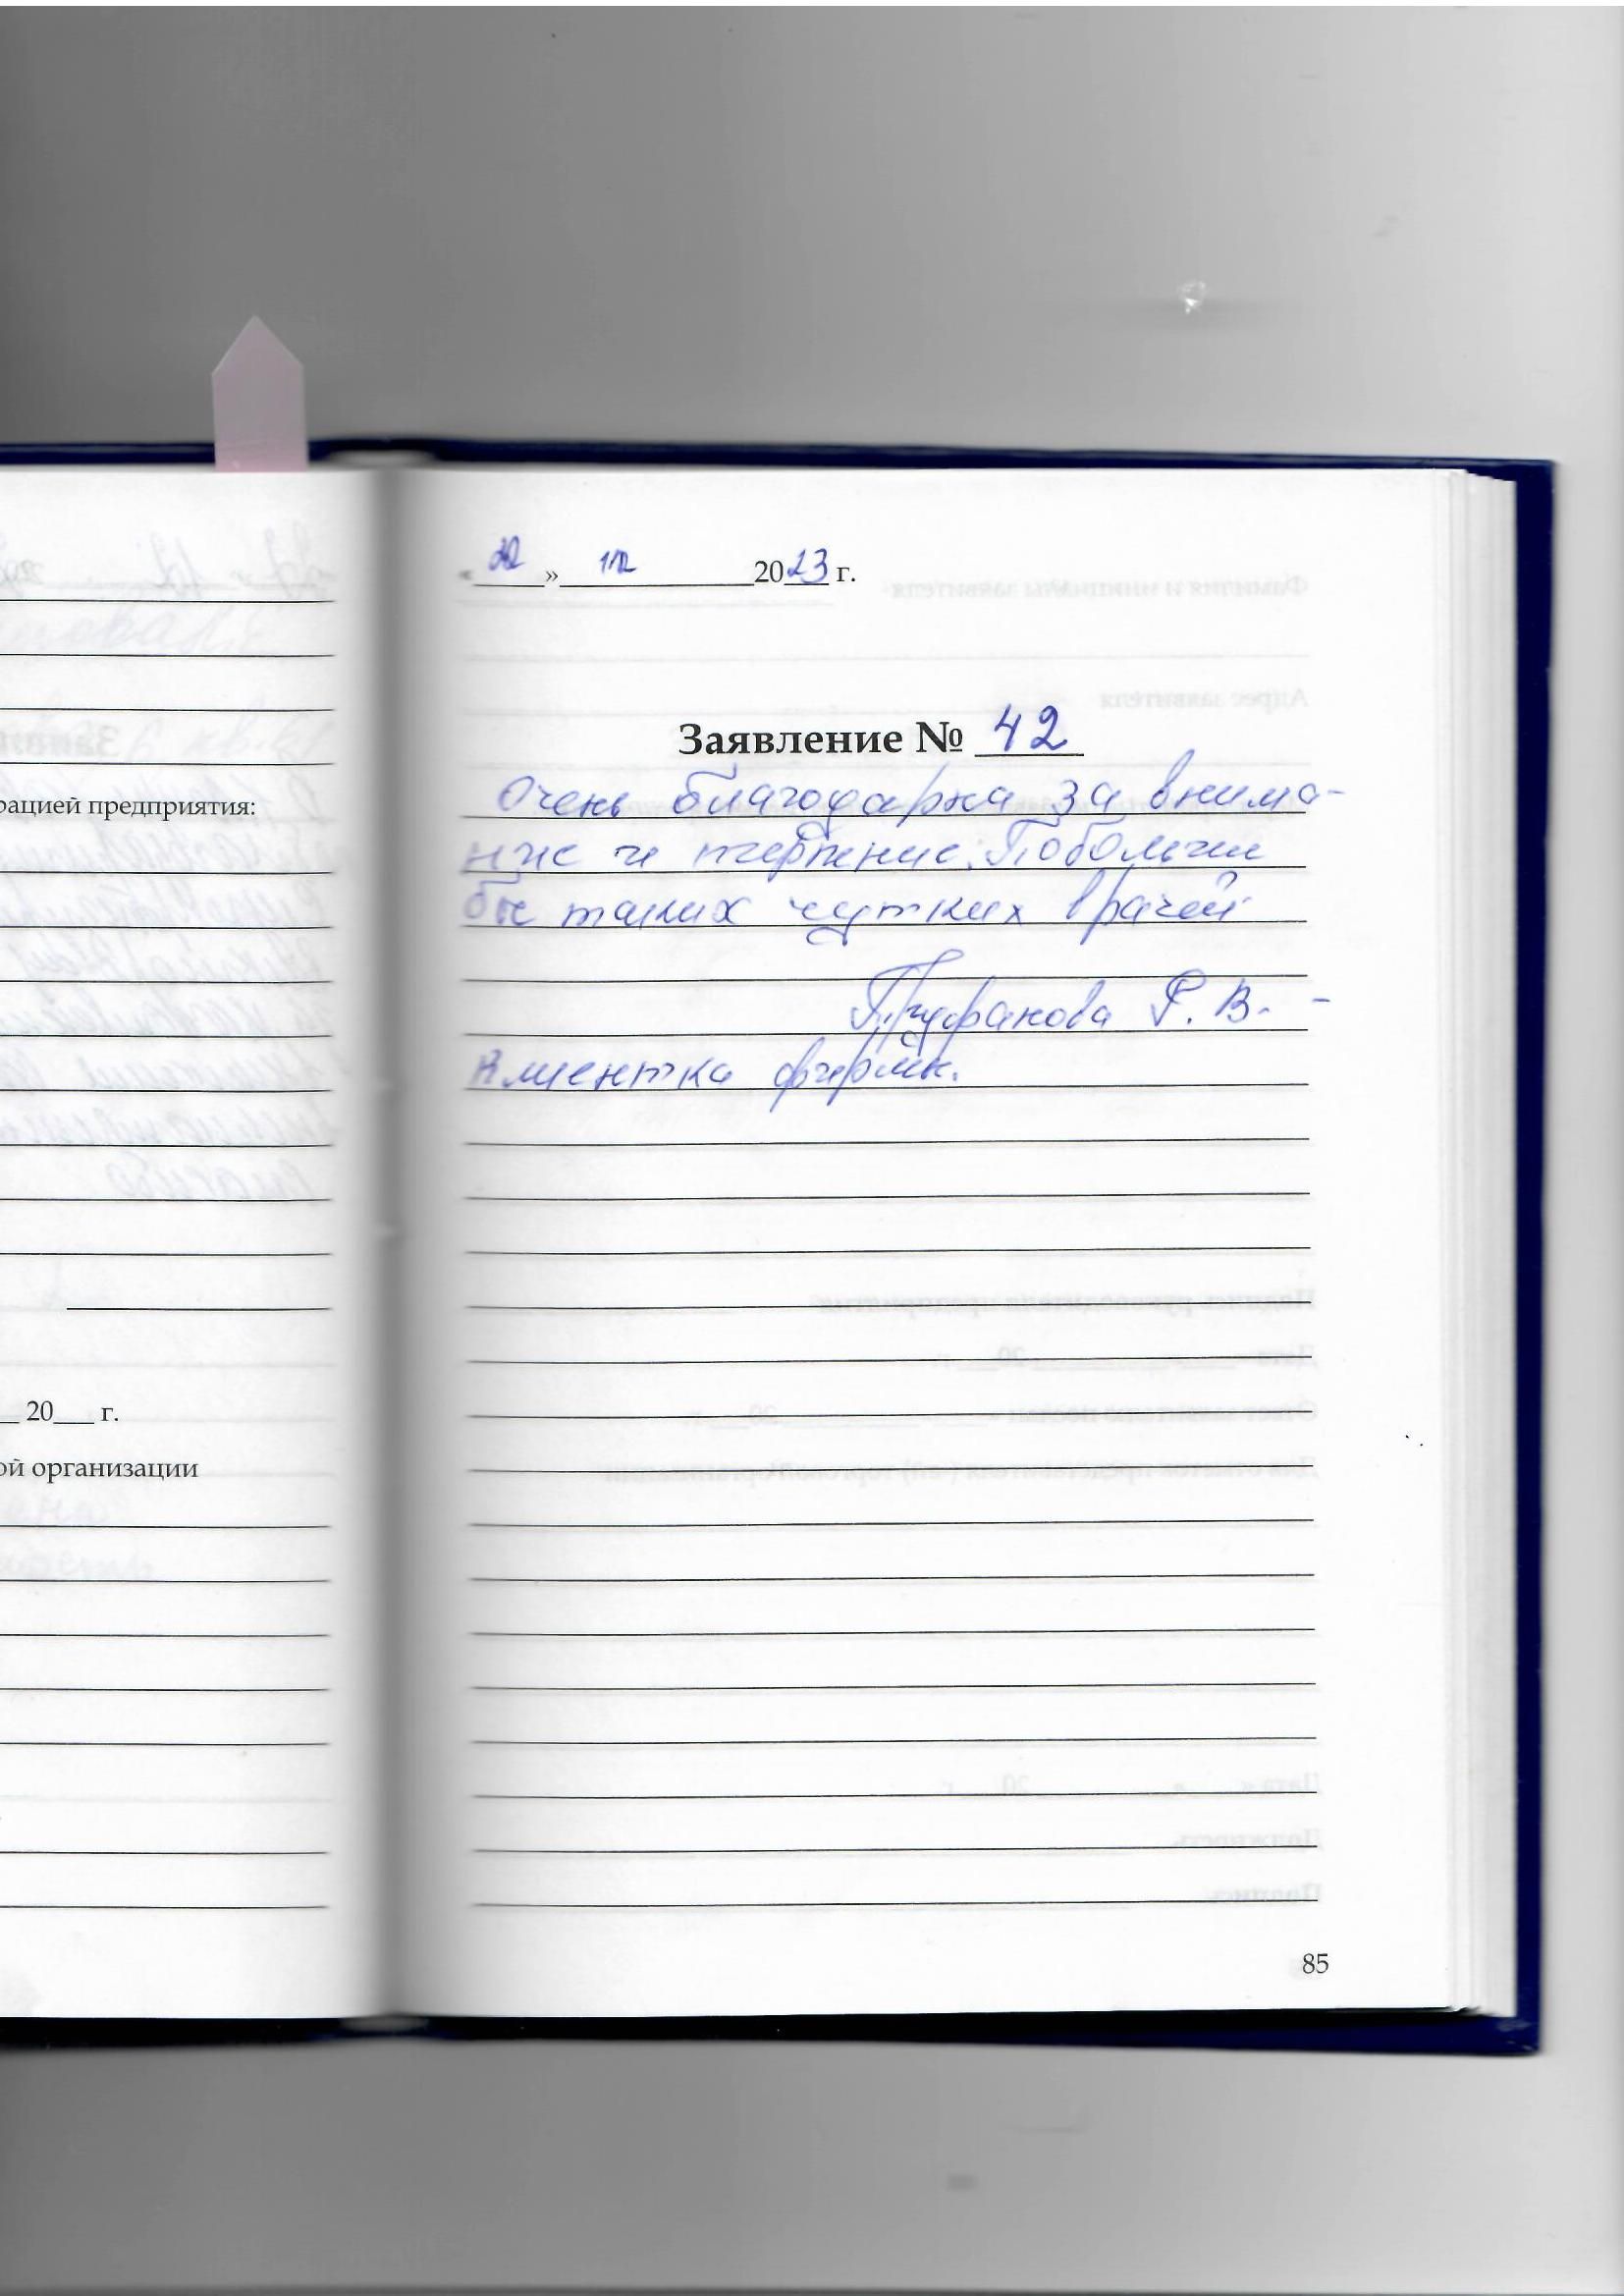 рацией предприятия:
20___ г.
ой организации
«____»____________2023 г.
Заявление № 42
Очень благодарна за внима-
ние и терпение. Побольше
бы таких чутких врачей
Р. В. -
клиентка
85